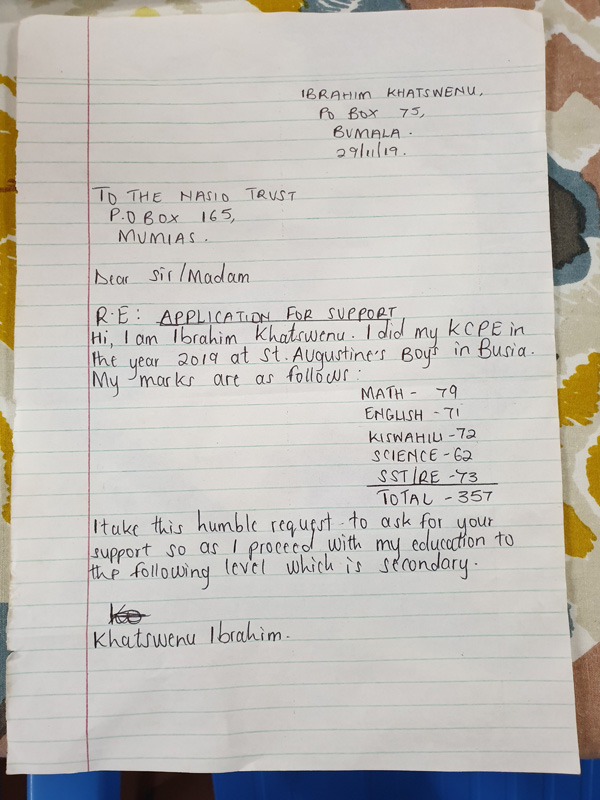 IBRAHIM KHATSWENU,
PO BOX 75,
BUMALA.
29/11/19.
TO THE NASIO TRUST
P.O BOX 165,
MUMIAS.
Dear Sir/Madam
R.E: APPLICATION FOR SUPPORT
Hi, I am Ibrahim Khatswenu. I did my KCPE in
the year 2019 at St. Augustine's Boys in Busia.
My marks are as follows:
MATH - 79
ENGLISH - 71
KISWAHILI - 72
SCIENCE - 62
SST/RE - 73
TOTAL - 357
I take this humble request to ask for your
support so as I proceed with my education to
the following level which is secondary.
Khatswenu Ibrahim.